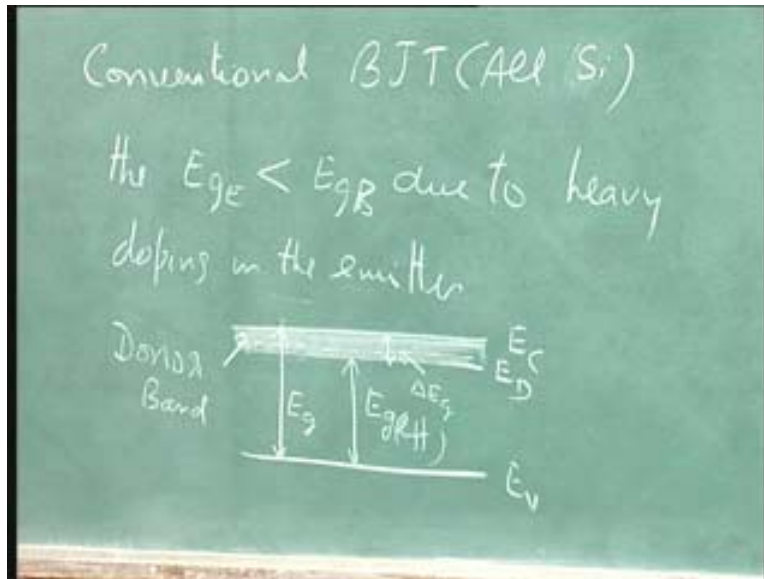 Conventional BJT (All Si)
the EgE < EgB due to heavy
doping in the emitter
Donor
Band
Eg
ΔEg
EC
ED
EV